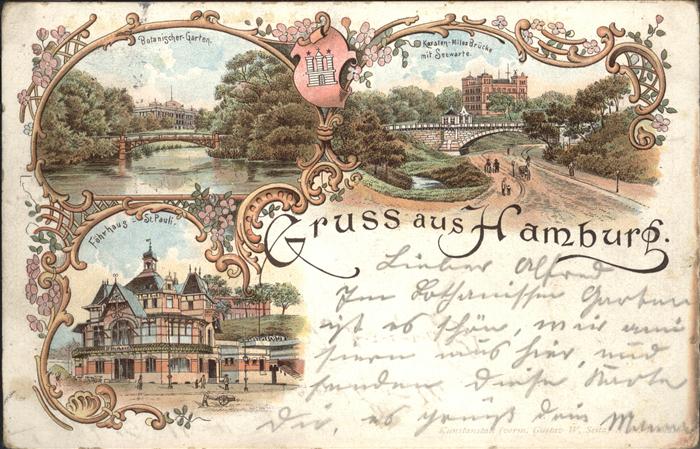 Botanischer-Garten.
Kersten-Miles Brücke
mit Seewarte.
Fährhaus St. Pauli.
Gruss aus Hamburg.
Lieber Alfred
Im Bothanissen Garten
ist es schön, wir amü
siren uns hier, und
senden diese Karte
Dir, es grüßt dein
Kunstanstalt (vorm. Gustav W. Seitz)